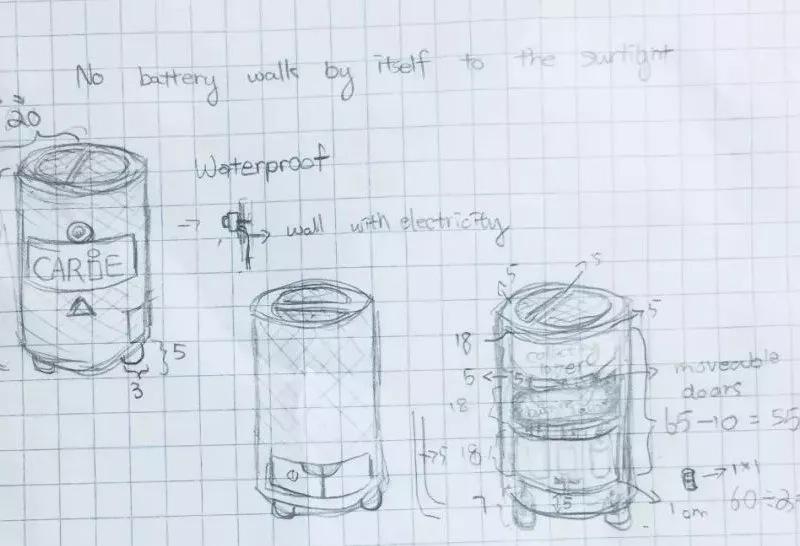 No battery walks by itself to the sunlight
20
Waterproof
→ wall with electricity
CARBE
5
3
5
5
5
18
5
18
18
5
7
5
moveable
doors
65-10=55
→ 1*1
1 cm
60÷3